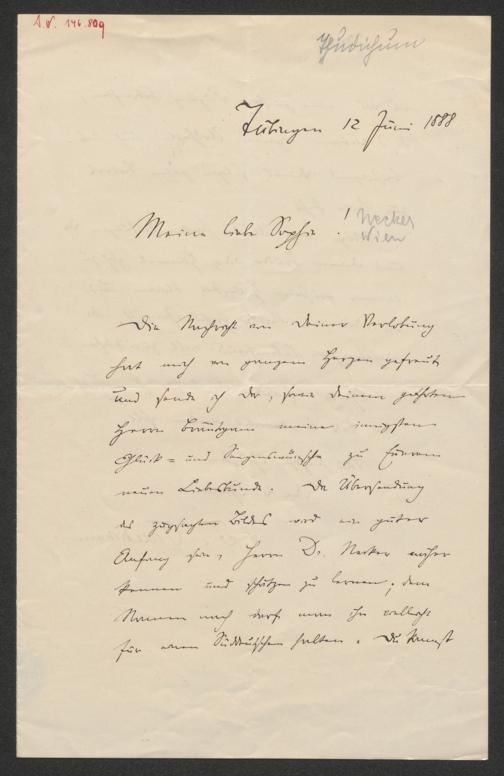 I.N. 146.809
Thudichum
Tübingen 12 Juni 1888
Meine liebe Sophie!
Necker
Wien
Die Nachricht von Deiner Verlobung
hat mich von ganzem Herzen gefreut
und sende ich Dir, sowie Deinem geehrten
Herrn Bräutigam meine innigsten
Glück- und Segenswünsche zu Eurem
neuen Liebesbunde. Die Übersendung
des zugesagten Bildes wird ein guter
Anfang sein, Herrn Dr. Necker näher
kennen und schätzen zu lernen; dem
Namen nach darf man ihn vielleicht
für einen Süddeutschen halten. Du kannst